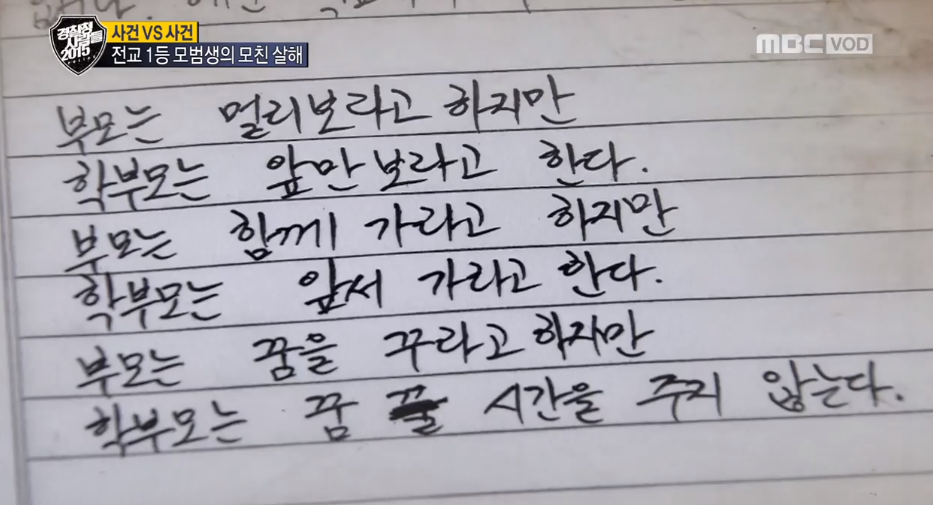 경찰청
사람들
2015
사건 VS 사건
전교 1등 모범생의 모친 살해
MBC VOD
부모는 멀리보라고 하지만
학부모는 앞만 보라고 한다.
부모는 함께 가라고 하지만
학부모는 앞서 가라고 한다.
부모는 꿈을 꾸라고 하지만
학부모는 꿈 꿀 시간을 주지 않는다.